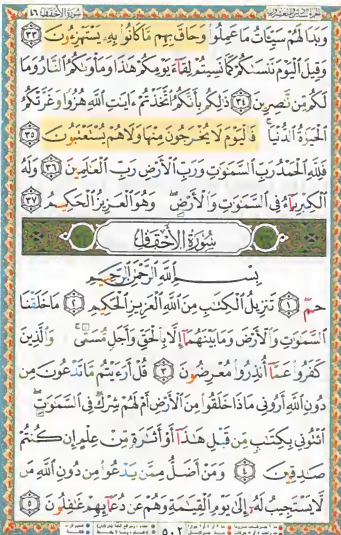 سُورَةُ الأَحْقَافِ ٤٦
وَبَدَا لَهُمْ سَيِّـَٔاتُ مَا عَمِلُوا۟ وَحَاقَ بِهِم مَّا كَانُوا۟ بِهِۦ يَسْتَهْزِءُونَ ٣٣
وَقِيلَ ٱلْيَوْمَ نَنسَىٰكُمْ كَمَا نَسِيتُمْ لِقَآءَ يَوْمِكُمْ هَٰذَا وَمَأْوَىٰكُمُ ٱلنَّارُ وَمَا
لَكُم مِّن نَّٰصِرِينَ ٣٤ ذَٰلِكُم بِأَنَّكُمُ ٱتَّخَذْتُمْ ءَايَٰتِ ٱللَّهِ هُزُوًا وَغَرَّتْكُمُ
ٱلْحَيَوٰةُ ٱلدُّنْيَا ۚ فَٱلْيَوْمَ لَا يُخْرَجُونَ مِنْهَا وَلَا هُمْ يُسْتَعْتَبُونَ ٣٥
فَلِلَّهِ ٱلْحَمْدُ رَبِّ ٱلسَّمَٰوَٰتِ وَرَبِّ ٱلْأَرْضِ رَبِّ ٱلْعَٰلَمِينَ ٣٦ وَلَهُ
ٱلْكِبْرِيَآءُ فِى ٱلسَّمَٰوَٰتِ وَٱلْأَرْضِ ۖ وَهُوَ ٱلْعَزِيزُ ٱلْحَكِيمُ ٣٧
سُورَةُ الأَحْقَافِ
بِسْمِ ٱللَّهِ ٱلرَّحْمَٰنِ ٱلرَّحِيمِ
حمٓ ١ تَنزِيلُ ٱلْكِتَٰبِ مِنَ ٱللَّهِ ٱلْعَزِيزِ ٱلْحَكِيمِ ٢ مَا خَلَقْنَا
ٱلسَّمَٰوَٰتِ وَٱلْأَرْضَ وَمَا بَيْنَهُمَآ إِلَّا بِٱلْحَقِّ وَأَجَلٍ مُّسَمًّى ۚ وَٱلَّذِينَ
كَفَرُوا۟ عَمَّآ أُنذِرُوا۟ مُعْرِضُونَ ٣ قُلْ أَرَءَيْتُم مَّا تَدْعُونَ مِن
دُونِ ٱللَّهِ أَرُونِى مَاذَا خَلَقُوا۟ مِنَ ٱلْأَرْضِ أَمْ لَهُمْ شِرْكٌ فِى ٱلسَّمَٰوَٰتِ ۖ
ٱئْتُونِى بِكِتَٰبٍ مِّن قَبْلِ هَٰذَآ أَوْ أَثَٰرَةٍ مِّنْ عِلْمٍ إِن كُنتُمْ
صَٰدِقِينَ ٤ وَمَنْ أَضَلُّ مِمَّن يَدْعُوا۟ مِن دُونِ ٱللَّهِ مَن
لَّا يَسْتَجِيبُ لَهُۥٓ إِلَىٰ يَوْمِ ٱلْقِيَٰمَةِ وَهُمْ عَن دُعَآئِهِمْ غَٰفِلُونَ ٥
٥٠٢